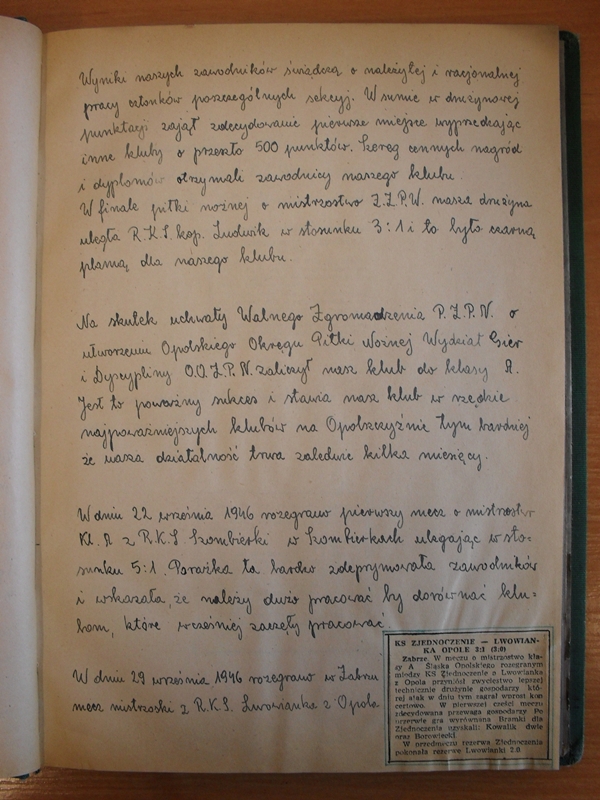 Wyniki naszych zawodników świadczą o należytej i racjonalnej
pracy członków poszczególnych sekcyj. W sumie w drużynowej
punktacji zajął zdecydowanie pierwsze miejsce wyprzedzając
inne kluby o przeszło 500 punktów. Szereg cennych nagród
i dyplomów otrzymali zawodnicy naszego klubu.
W finale piłki nożnej o mistrzostwo Z.Z.P.W. nasza drużyna
uległa R.K.S. kop. Ludwik w stosunku 3:1 i to było czarną
plamą dla naszego klubu.
Na skutek uchwały Walnego Zgromadzenia P.Z.P.N. o
utworzeniu Opolskiego Okręgu Piłki Nożnej Wydział Gier
i Dyscypliny O.O.Z.P.N. zaliczył nasz klub do klasy A.
Jest to poważny sukces i stawia nasz klub w rzędzie
najpoważniejszych klubów na Opolszczyźnie tym bardziej
że nasza działalność trwa zaledwie kilka miesięcy.
W dniu 22 września 1946 rozegrano pierwszy mecz o mistrzostw
Kl. A z R.K.S. Szombierki w Szombierkach ulegając w sto-
sunku 5:1. Porażka ta bardzo zdeprymowała zawodników
i wskazała, że należy dużo pracować by dorównać klu-
bom, które wcześniej zaczęły pracować.
W dniu 29 września 1946 rozegrano w Zabrzu
mecz mistrzoski z R.K.S. Lwowianka z Opola
KS ZJEDNOCZENIE — LWOWIAN-
KA OPOLE 3:1 (3:0)
Zabrze. W meczu o mistrzostwo kla-
sy A Śląska Opolskiego rozegranym
między KS Zjednoczenie a Lwowianką
z Opola przyniósł zwycięstwo lepszej
technicznie drużynie gospodarzy któ-
rej atak w dniu tym zagrał wprost kon
certowo. W pierwszej części meczu
zdecydowana przewaga gospodarzy. Po
przerwie gra wyrównana. Bramki dla
Zjednoczenia uzyskali: Kowalik dwie
oraz Borowiecki.
W przedmeczu rezerwa Zjednoczenia
pokonała rezerwę Lwowianki 2:0.